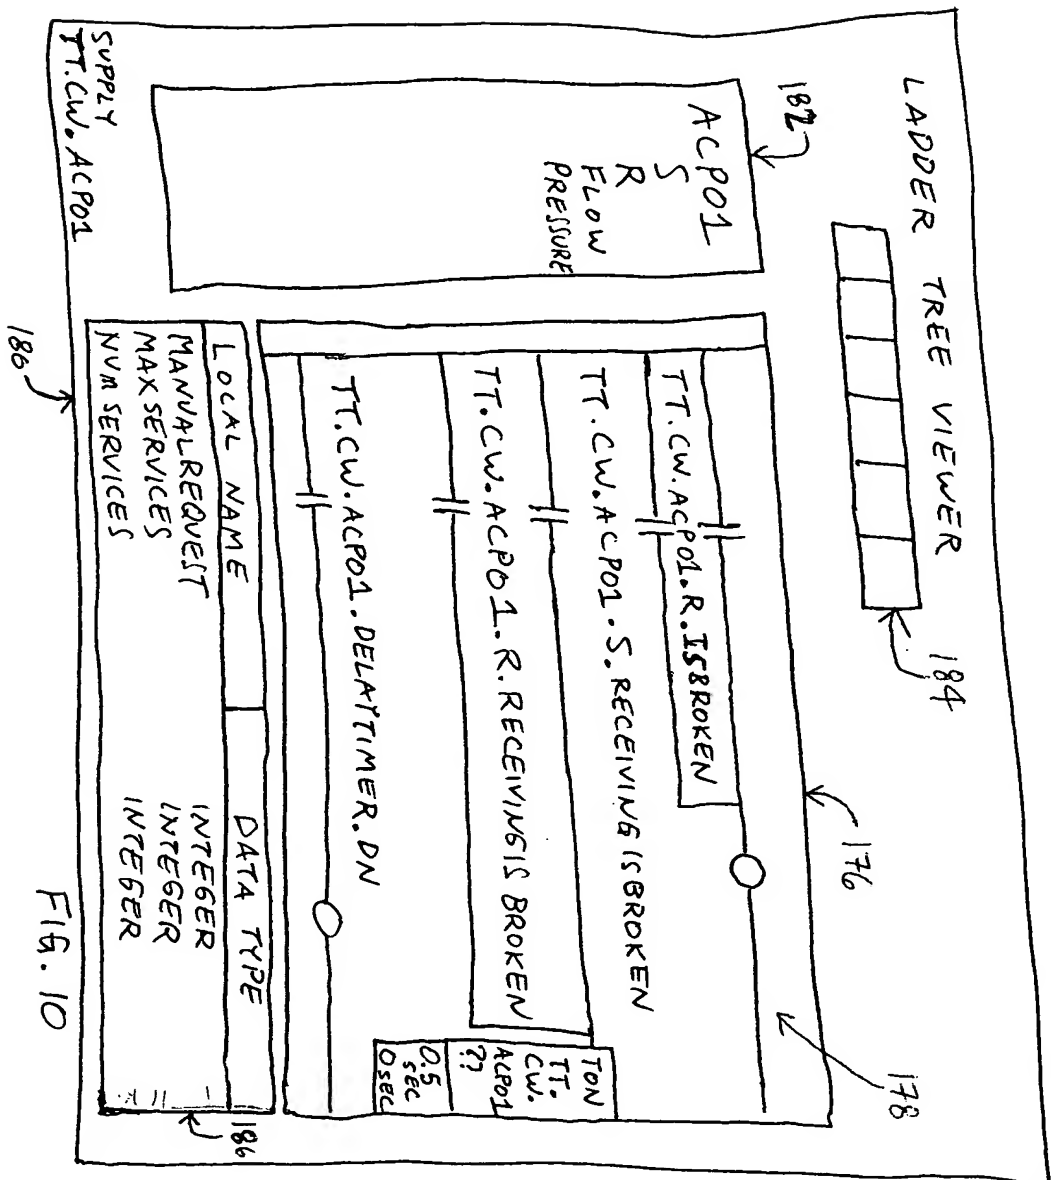 LADDER TREE VIEWER
184
182
ACP01
S
R
FLOW
PRESSURE
176
178
TT.CW.ACP01.R.ISBROKEN
TT.CW.ACP01.S.RECEIVINGISBROKEN
TT.CW.ACP01.R.RECEIVINGISBROKEN
TON
TT.
CW.
ACP01
??
0.5
SEC
0 SEC
TT.CW.ACP01.DELAYTIMER.DN
LOCAL NAME DATA TYPE
MANUALREQUEST INTEGER
MAXSERVICES INTEGER
NUMSERVICES INTEGER
186
SUPPLY
TT.CW.ACP01
186
FIG. 10